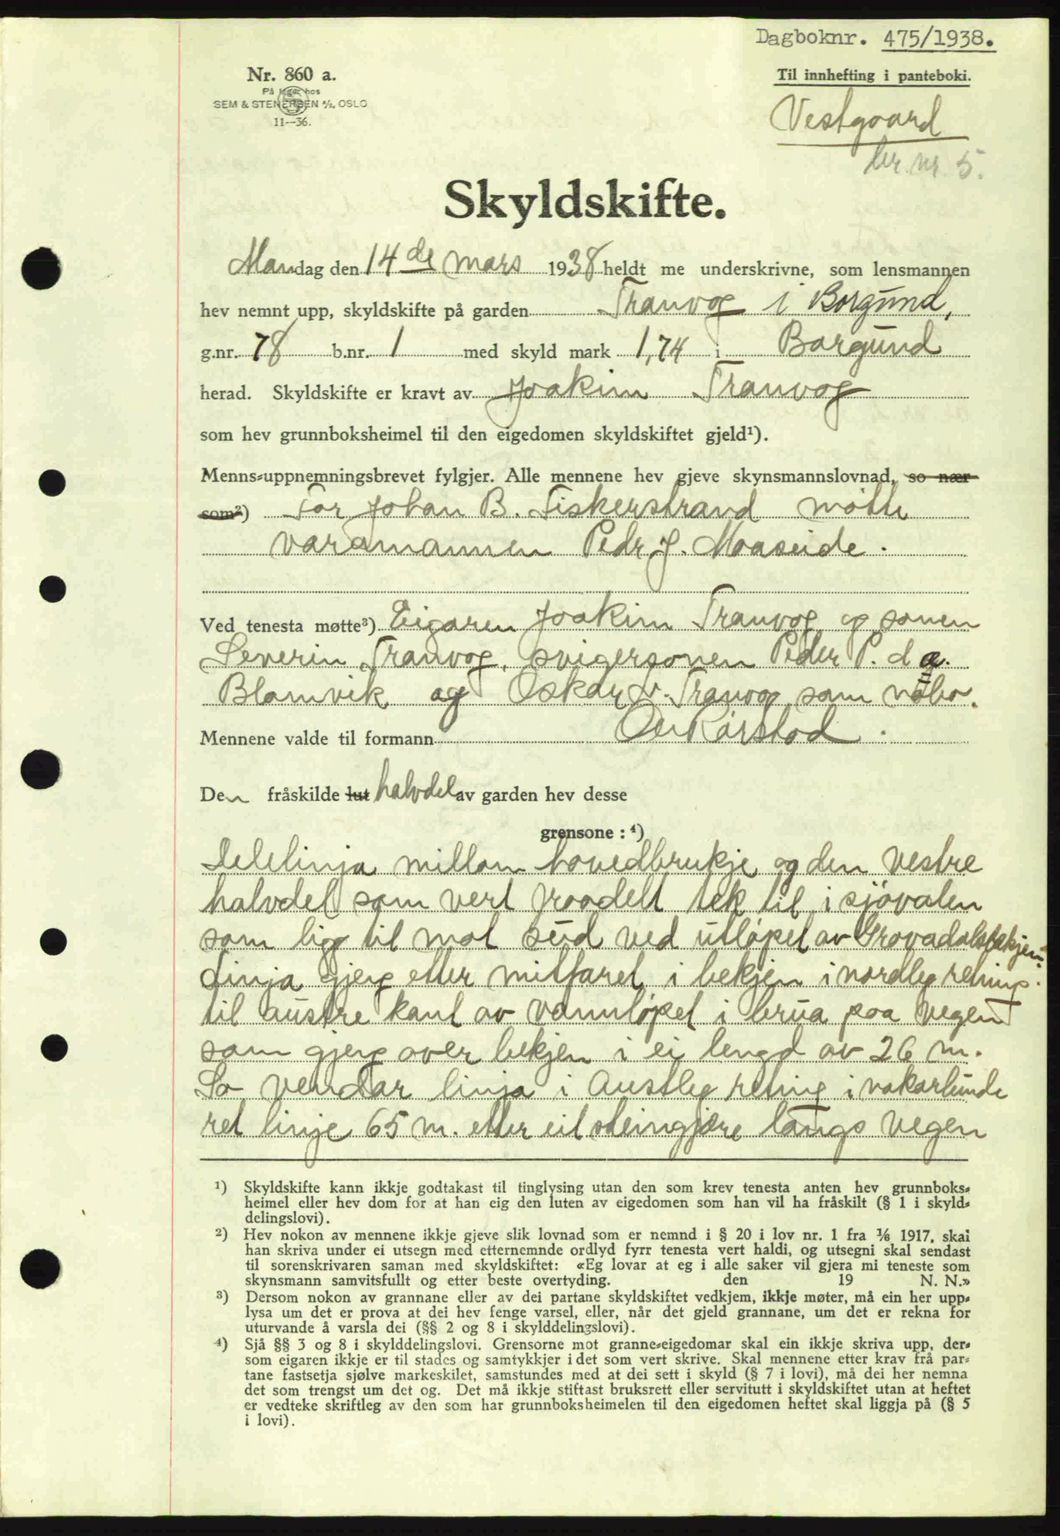 Dagboknr. 475/1938.
Nr. 860 a.
På lager hos
SEM & STENERSEN A/S, OSLO
11—36.
Til innhefting i panteboki.
Vestgaard
br. nr. 5.
Skyldskifte.
Mandag den 14de mars 1938 heldt me underskrivne, som lensmannen
hev nemnt upp, skyldskifte på garden Tranvog i Borgund,
g.nr. 78 b.nr. 1 med skyld mark 1,74 i Borgund
herad. Skyldskifte er kravt av Joakim Tranvog
som hev grunnboksheimel til den eigedomen skyldskiftet gjeld¹).
Menns-uppnemningsbrevet fylgjer. Alle mennene hev gjeve skynsmannslovnad, so nær
som²) For Johan B. Fiskerstrand møtte
varamannen Peder J. Maaseide.
Ved tenesta møtte³) Eigaren Joakim Tranvog og sonen
Severin Tranvog, svigersonen Peder P. d.a.
Blomvik og Oskar Tranvog som nabo.
Mennene valde til formann Karstad.
Den fråskilde lut halvdel av garden hev desse
grensone : ⁴)
Delelinja millom hovedbrukje og den vestre
halvdel som vert fraadelt tek til i sjøvalen
som ligg til mot syd ved utløpet av Grovadalsbekjen.
Linja gjeng etter mitfaret i bekjen i nordleg retning
til austre kant av vannløpet i brua paa vegen
som gjeng over bekjen i ei lengd av 26 m.
So vendar linja i Austleg retning i vakarlunde
ret linje 65 m. etter eit steingjære langs vegen
¹) Skyldskifte kann ikkje godtakast til tinglysing utan den som krev tenesta anten hev grunnboks-
heimel eller hev dom for at han eig den luten av eigedomen som han vil ha fråskilt (§ 1 i skyld-
delingslovi).
²) Hev nokon av mennene ikkje gjeve slik lovnad som er nemnd i § 20 i lov nr. 1 fra 1/6 1917, skal
han skriva under ei utsegn med etternemnde ordlyd fyrr tenesta vert haldi, og utsegni skal sendast
til sorenskrivaren saman med skyldskiftet: «Eg lovar at eg i alle saker vil gjera mi teneste som
skynsmann samvitsfullt og etter beste overtyding. den 19 N. N.»
³) Dersom nokon av grannane eller av dei partane skyldskiftet vedkjem, ikkje møter, må ein her upp-
lysa um det er prova at dei hev fenge varsel, eller, når det gjeld grannane, um det er rekna for
uturvande å varsla dei (§§ 2 og 8 i skylddelingslovi).
⁴) Sjå §§ 3 og 8 i skylddelingslovi. Grensorne mot granne-eigedomar skal ein ikkje skriva upp, der-
som eigaren ikkje er til stades og samtykkjer i det som vert skrive. Skal mennene etter krav frå par-
tane fastsetja sjølve markeskilet, samstundes med at dei sett i skyld (§ 7 i lovi), må dei her nemna
det som trengst um det og. Det må ikkje stiftast bruksrett eller servitutt i skyldskiftet utan at heftet
er vedteke skriftleg av den som har grunnboksheimelen til den eigedomen heftet skal liggja på (§ 5
i lovi).